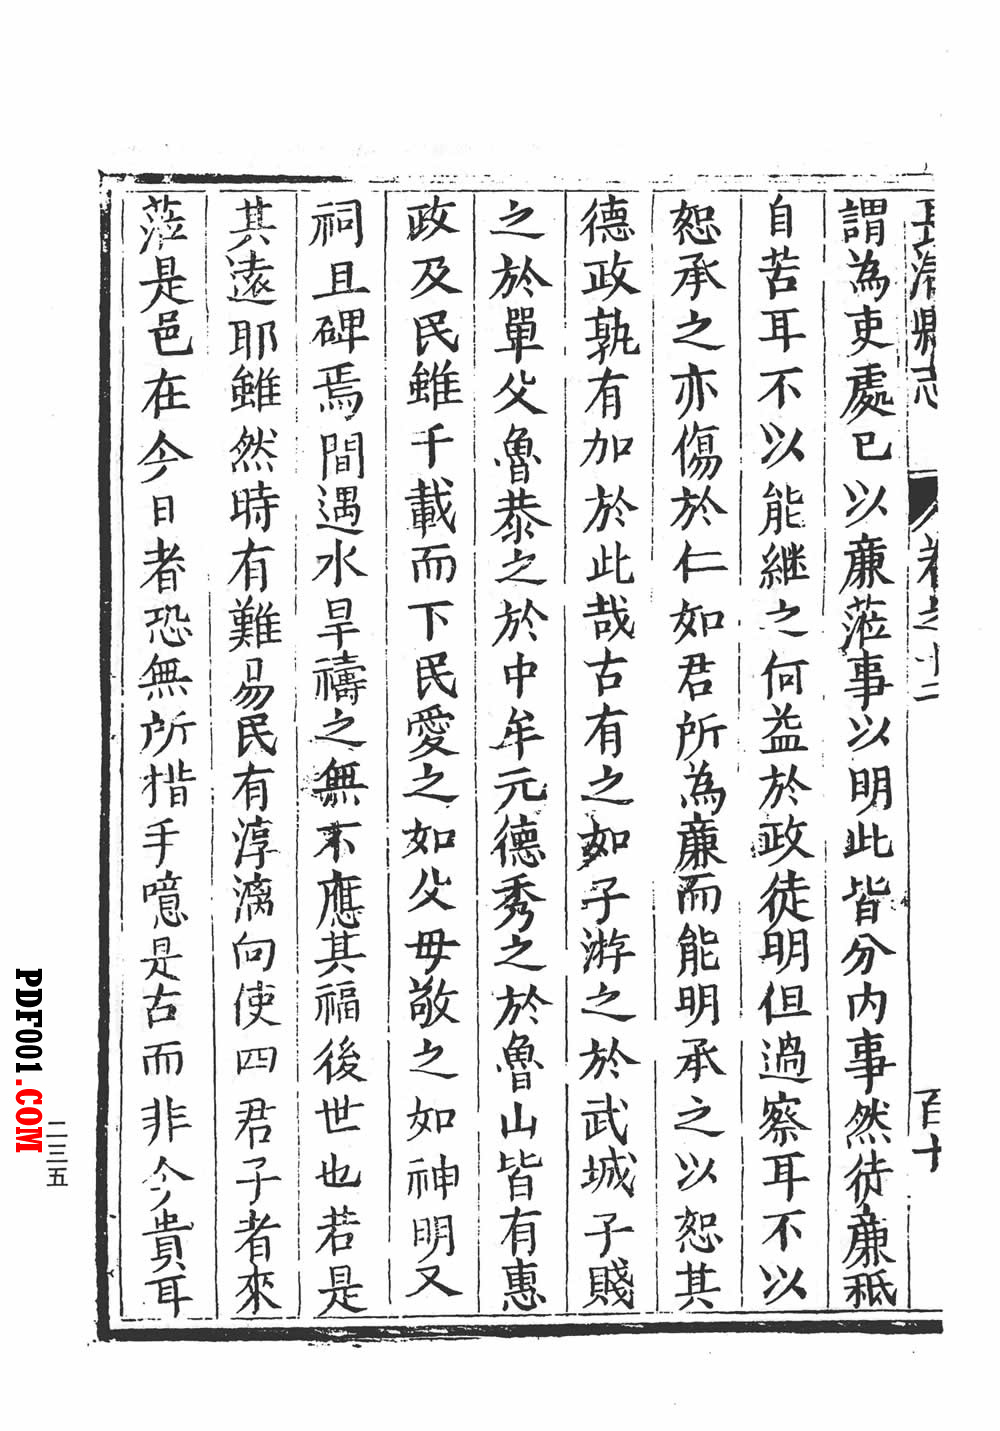 長清縣志 卷之十二 百十
謂為吏處已以亷蒞事以明此皆分内事然徒亷秪
自苦耳不以能継之何益於政徒明但過察耳不以
恕承之亦傷於仁如君所為亷而能明承之以恕其
德政孰有加於此哉古有之如子游之於武城子賤
之於單父魯恭之於中牟元德秀之於魯山皆有惠
政及民雖千載而下民愛之如父母敬之如神明又
祠且碑焉間遇水旱禱之無不應其福後世也若是
其遠耶雖然時有難易民有淳漓向使四君子者來
蒞是邑在今日者恐無所措手噫是古而非今貴耳
二三五
PDF001.COM